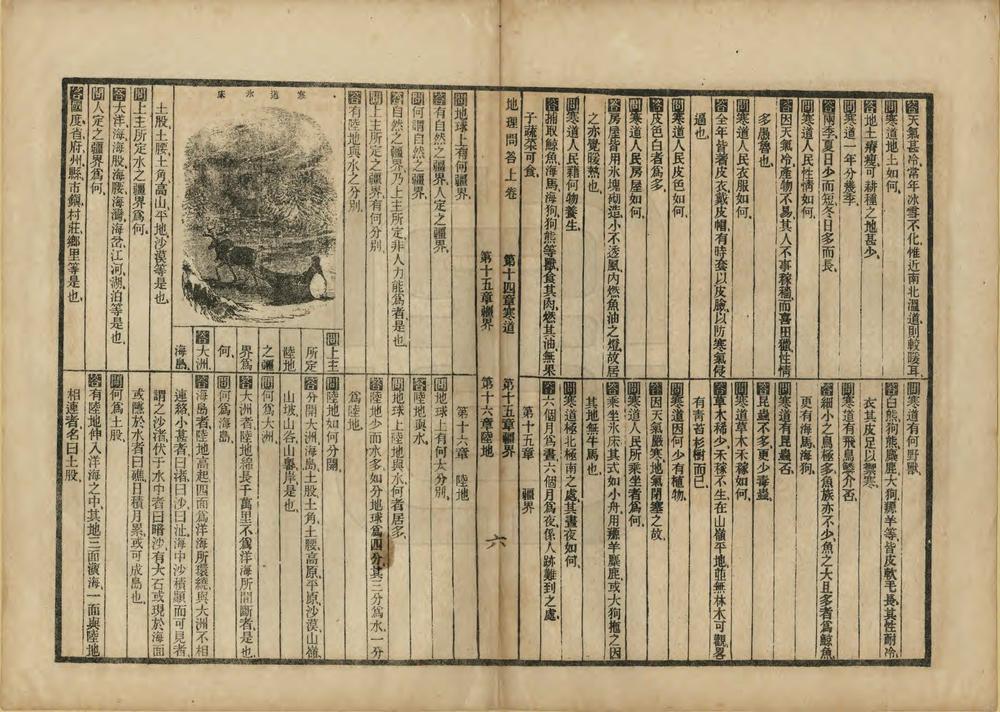 答天氣甚冷常年冰雪不化惟近南北溫道則較暖耳
問寒道地土如何
答地土瘠瘦可耕種之地甚少
問寒道一年分幾季
答兩季夏日少而短冬日多而長
問寒道人民性情如何
答因天氣冷產物不易其人不事稼穡而喜田獵性情
多愚魯也
問寒道人民衣服如何
答全年皆著皮衣戴皮帽有時套以皮臉以防寒氣侵
逼也
問寒道人民皮色如何
答皮色白者爲多
問寒道人民房屋如何
答房屋皆用氷塊砌造小不透風內燃魚油之燈故居
之亦覺暖熱也
問寒道人民藉何物養生
答捕取鯨魚海馬海狗狗熊等獸食其肉燃其油無果
子蔬菜可食
問寒道有何野獸
答白熊狗熊麋鹿大狗羱羊等皆皮軟毛長其性耐冷
衣其皮足以禦寒
問寒道有飛鳥鱗介否
答細小之鳥極多魚族亦不少魚之大且多者爲鯨魚
更有海馬海狗
問寒道有昆蟲否
答昆蟲不多更少毒蟲
問寒道草木禾稼如何
答草木稀少禾稼不生在山嶺平地並無林木可觀畧
有青苔杉樹而已
問寒道因何少有植物
答因天氣嚴寒地氣閉塞之故
問寒道人民所乘坐者爲何
答乘坐氷床其式如小舟用羱羊麋鹿或大狗拖之因
其地無牛馬也
問寒道極北極南之處其晝夜如何
答六個月爲晝六個月爲夜係人跡難到之處
第十五章 疆界
地理問答上卷
第十四章寒道
第十五章疆界
第十五章疆界
第十六章陸地
六
問地球上有何疆界
答有自然之疆界人定之疆界
問何謂自然之疆界
答自然之疆界乃上主所定非人力能爲者是也
問上主所定之疆界有何分別
答有陸地與水之分別
寒道氷床
問上主
所定
陸地
之疆
界爲
何
答大洲
海島
土股土腰土角高山平地沙漠等是也
問上主所定水之疆界爲何
答大洋海海股海腰海灣海岔江河湖泊等是也
問人定之疆界爲何
答國度省府州縣市鎭村莊鄉里等是也
第十六章 陸地
問地球上有何大分別
答陸地與水
問地球上陸地與水何者居多
答陸地少而水多如分地球爲四分其三分爲水一分
爲陸地
問陸地如何分開
答分開大洲海島土股土角土腰高原平原沙漠山嶺
山坡山谷山磐岸是也
問何爲大洲
答大洲者陸地綿長千萬里不爲洋海所間斷者是也
問何爲海島
答海島者陸地高起四面爲洋海所環繞與大洲不相
連絡小甚者曰渚曰沙曰沚海中沙積顯而可見者
謂之沙渚伏于水中者曰暗沙有大石或現於海面
或隱於水者曰礁日積月累或可成島也
問何爲土股
答有陸地伸入洋海之中其地三面濱海一面與陸地
相連者名曰土股